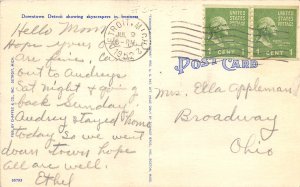 Downtown Detroit showing skyscrapers in business
Hello Mom
Hope you
are fine.
out to Audreys
Sat night & going
back Sunday.
Audrey stayed home
today. So we went
down town hope
all are well.
Ethel
DETROIT, MICH.
JUL 9
PM
1952
UNITED STATES POSTAGE
1 CENT
UNITED STATES POSTAGE
1 CENT
POST CARD
Mrs. Ella Appleman
Broadway
Ohio